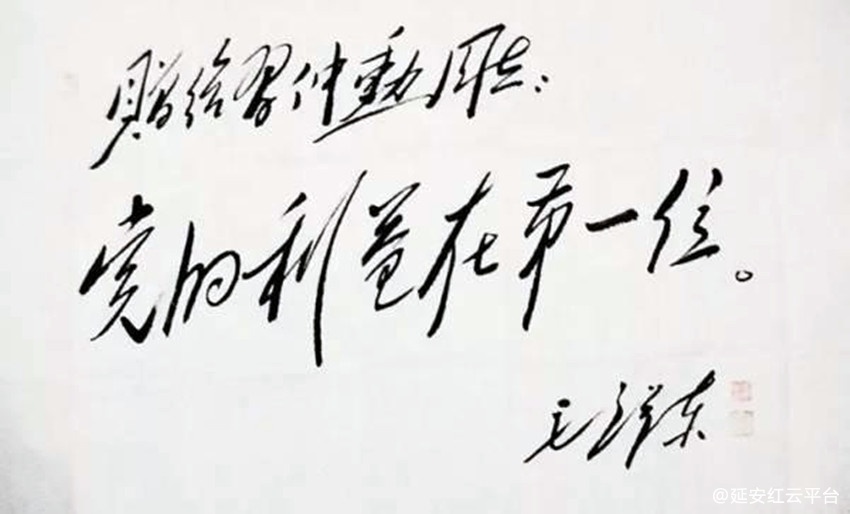 赠给習仲勳同志：
党的利益在第一位。
毛泽东
@延安红云平台